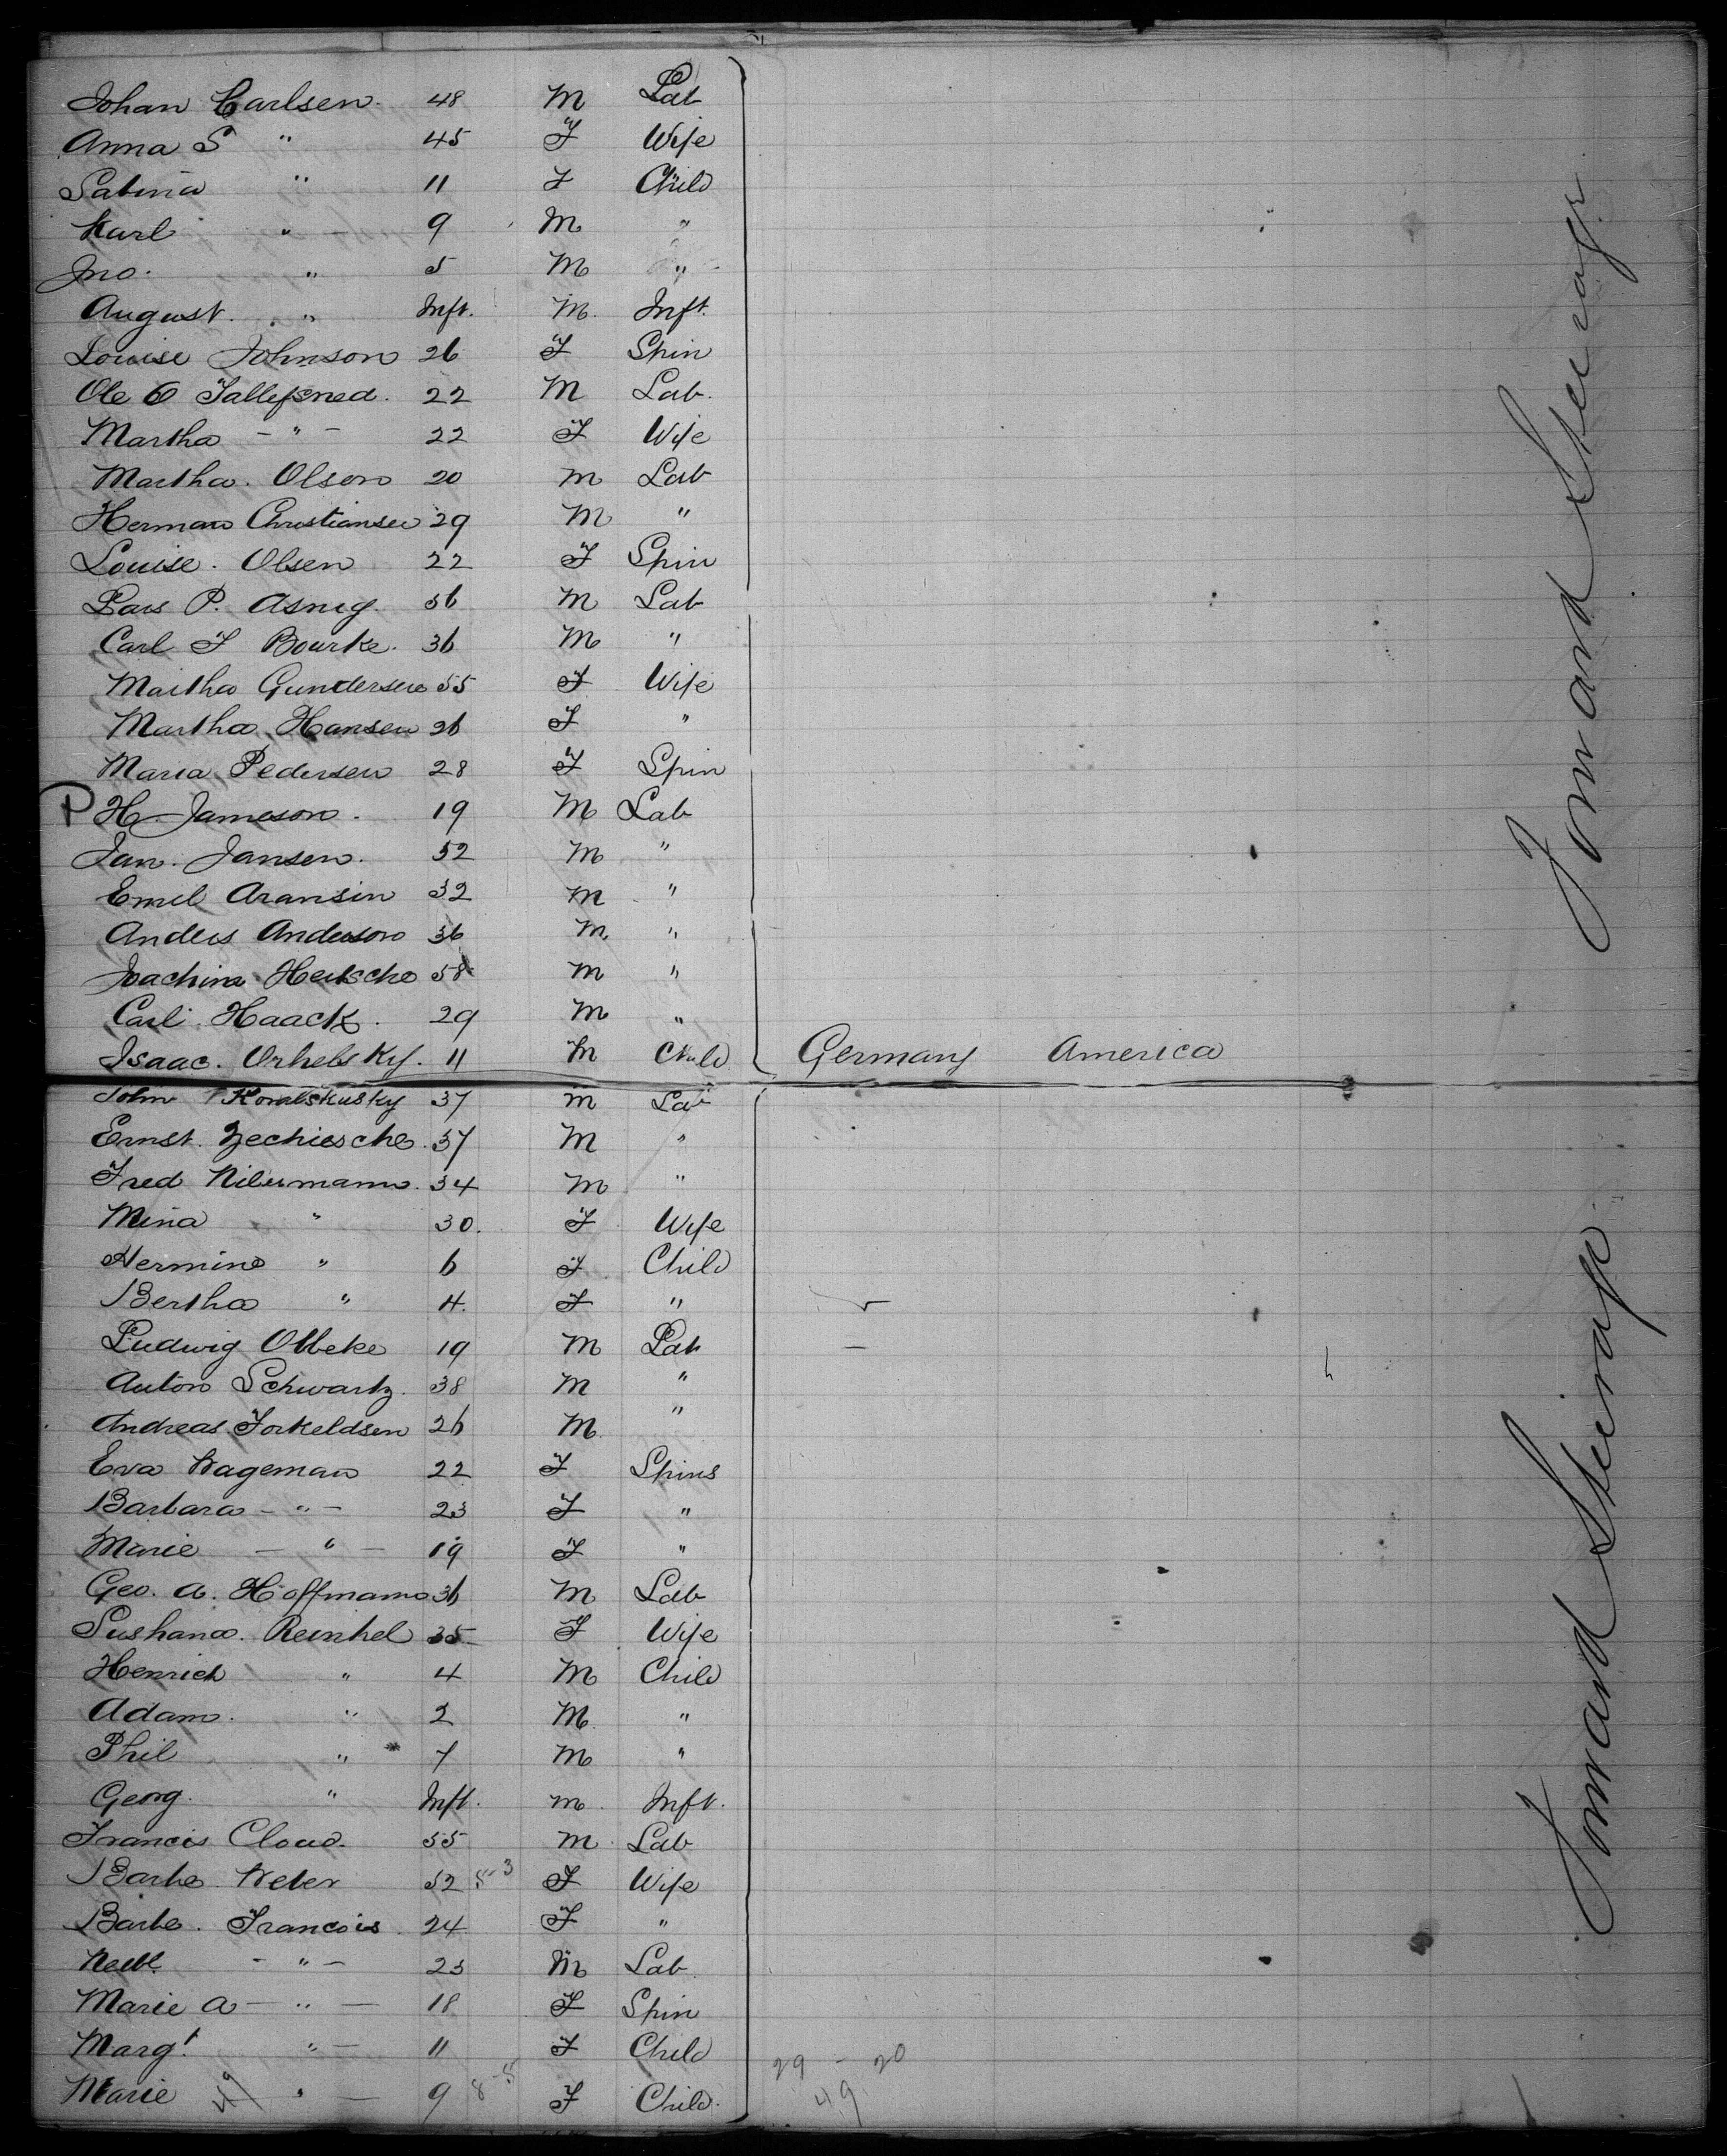 Johan Carlsen. 48 M Lab
Anna S " 45 F Wife
Sabina " 11 F Child
Karl " 9 M "
Jno. " 5 M "
August. " Inft. M. Inft.
Louise Johnson 26 F Spin
Ole O 22 M Lab.
Martha - " - 22 F Wife
Martha. Olson 20 M Lab
Herman Christiansen 29 M "
Louise. Olsen 22 F Spin
Lars P. 36 M Lab
Carl F Bourke. 36 M "
Martha Gundersen 55 F Wife
Martha Hansen 26 F "
Maria Pedersen 28 F Spin
P H Jameson. 19 M Lab
Jan. Jansen. 52 M "
Emil Aransin 32 M "
Anders Anderson 36 M. "
Joachim 58 M "
Carl Haack. 29 M "
Isaac. 11 M Child Germany America
John 37 M Lab
Ernst. Zechiesche. 37 M "
Fred 34 M "
Mina " 30. F Wife
Hermine " 6 F Child
Bertha " 4. F "
Ludwig 19 M Lab
Anton Schwartz. 38 M "
Andreas Torkeldsen 26 M. "
Eva Wageman 22 F Spins
Barbara - " - 23 F "
Marie - " - 19 F "
Geo. A. Hoffmann 36 M Lab
Sushana. Reinhel 35 F Wife
Henrich " 4 M Child
Adam. " 2 M. "
Phil " 7 M "
Georg. " Inft. M. Inft.
Francis 55 M Lab
Barbe Weber 52 8-3 F Wife
Barbe. Francois. 24 F "
- " - 23 M Lab
Marie A - " - 18 F Spin
Margt " - 11 F Child 29 - 20
Marie 49 " - 9 8-5 F Child. 49
Forward Steerage
Forward Steerage